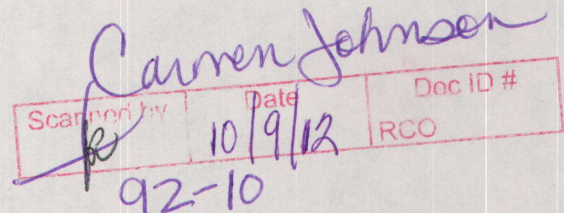 Carmen Johnson
Scanned by Date Doc ID #
10/9/12 RCO
92-10